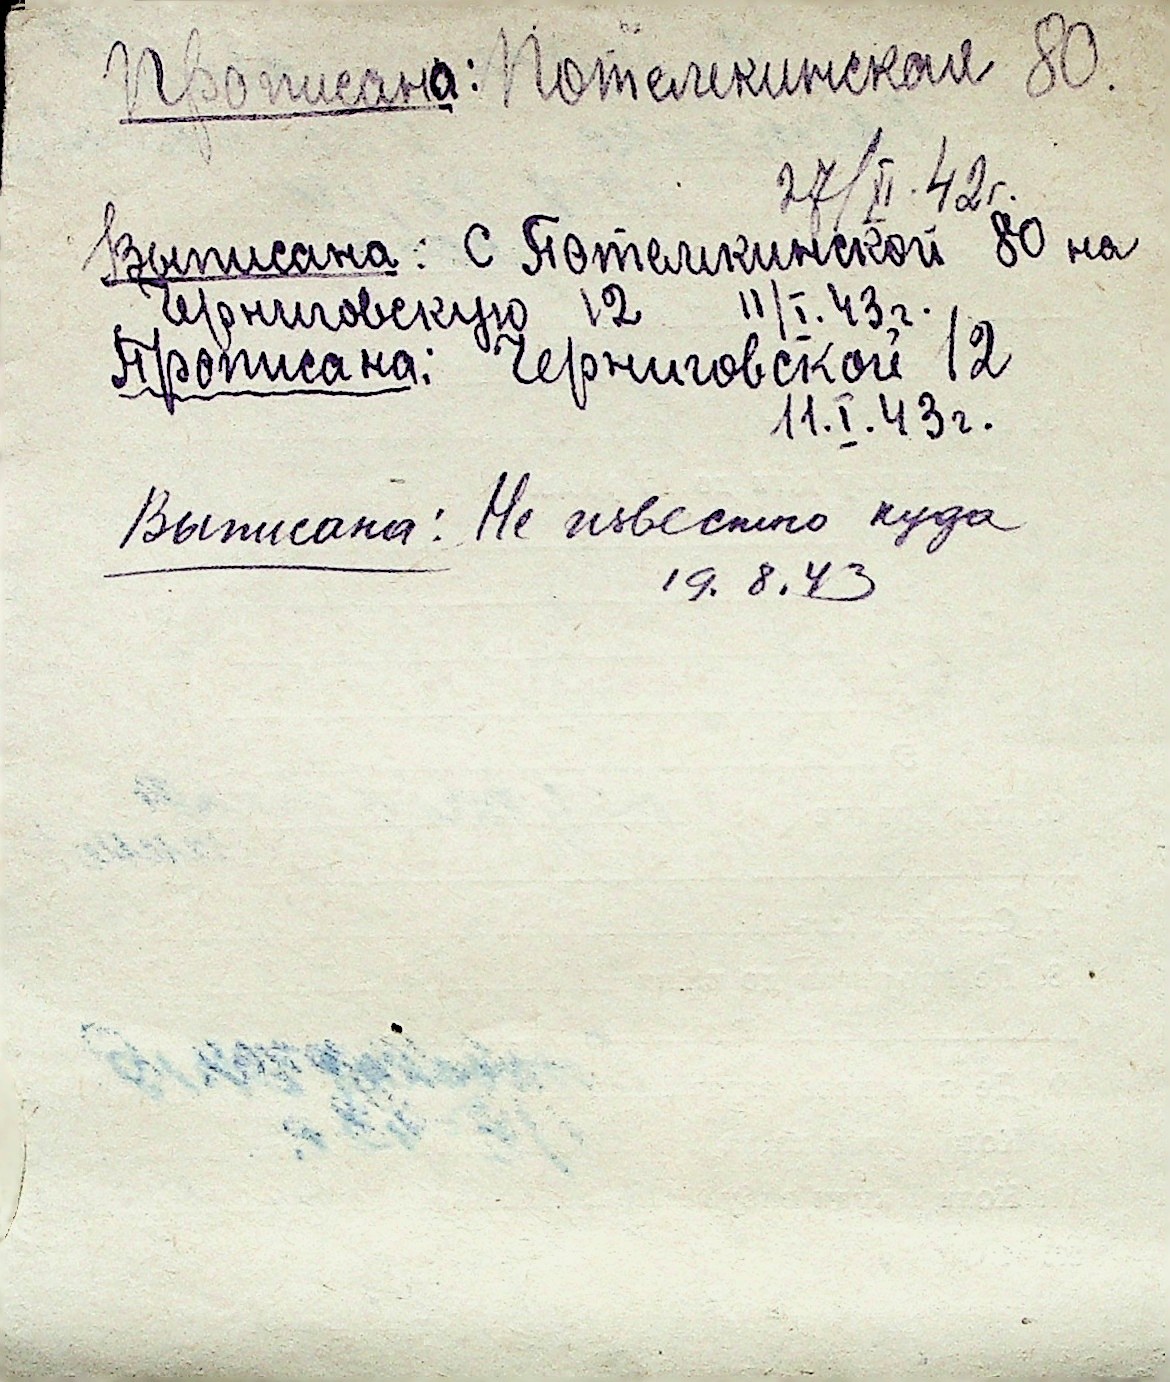 Прописана: Потемкинская 80.
27/II.42г.
Выписана: с Потемкинской 80 на
Черниговскую 12 11/I.43г.
Прописана: Черниговской 12
11.I.43г.
Выписана: Не известно куда
19.8.43